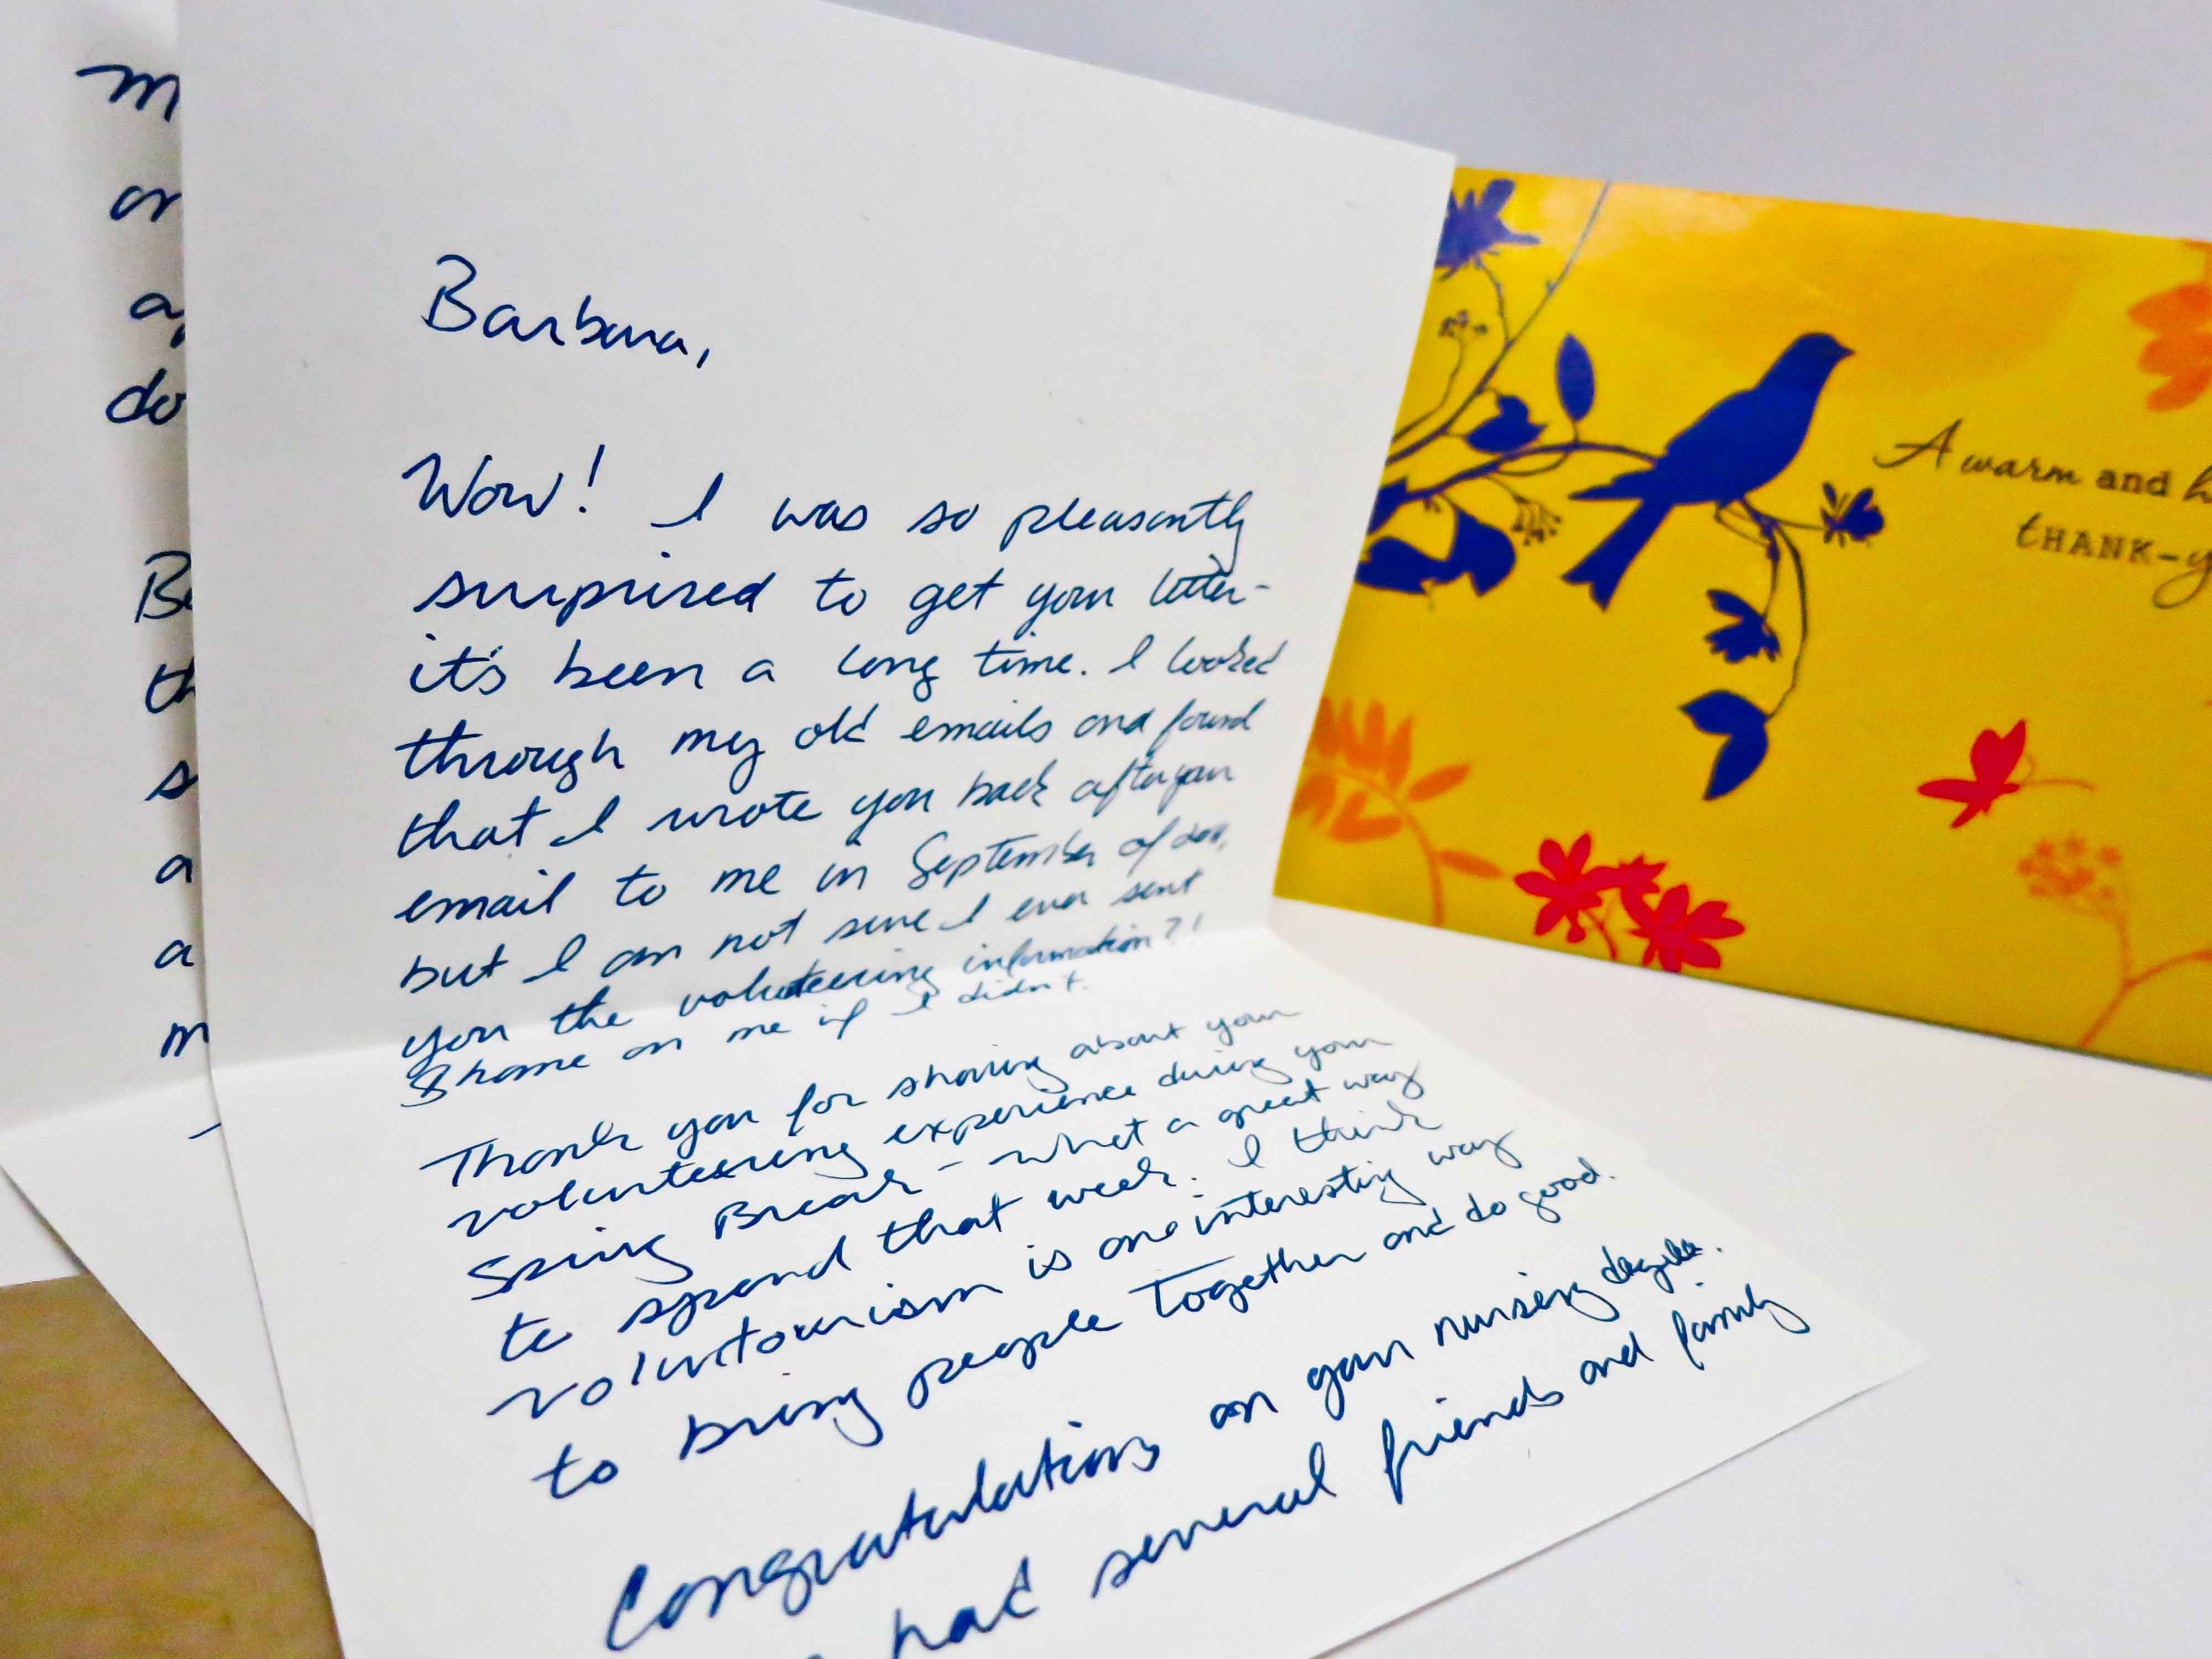 Barbara,
Wow! I was so pleasantly
surprised to get your letter-
it's been a long time. I looked
through my old emails and found
that I wrote you back after your
email to me in September of
but I am not sure I ever sent
you the volunteering information?!
Shame on me if I didn't.
Thank you for sharing about your
volunteering experience during your
Spring Break - what a great way
to spend that week. I think
voluntourism is one interesting way
to bring people together and do good.
Congratulations on your nursing degree.
had several friends and family
A warm and h
THANK-y
m
on
a
do
Be
th
s
a
a
m